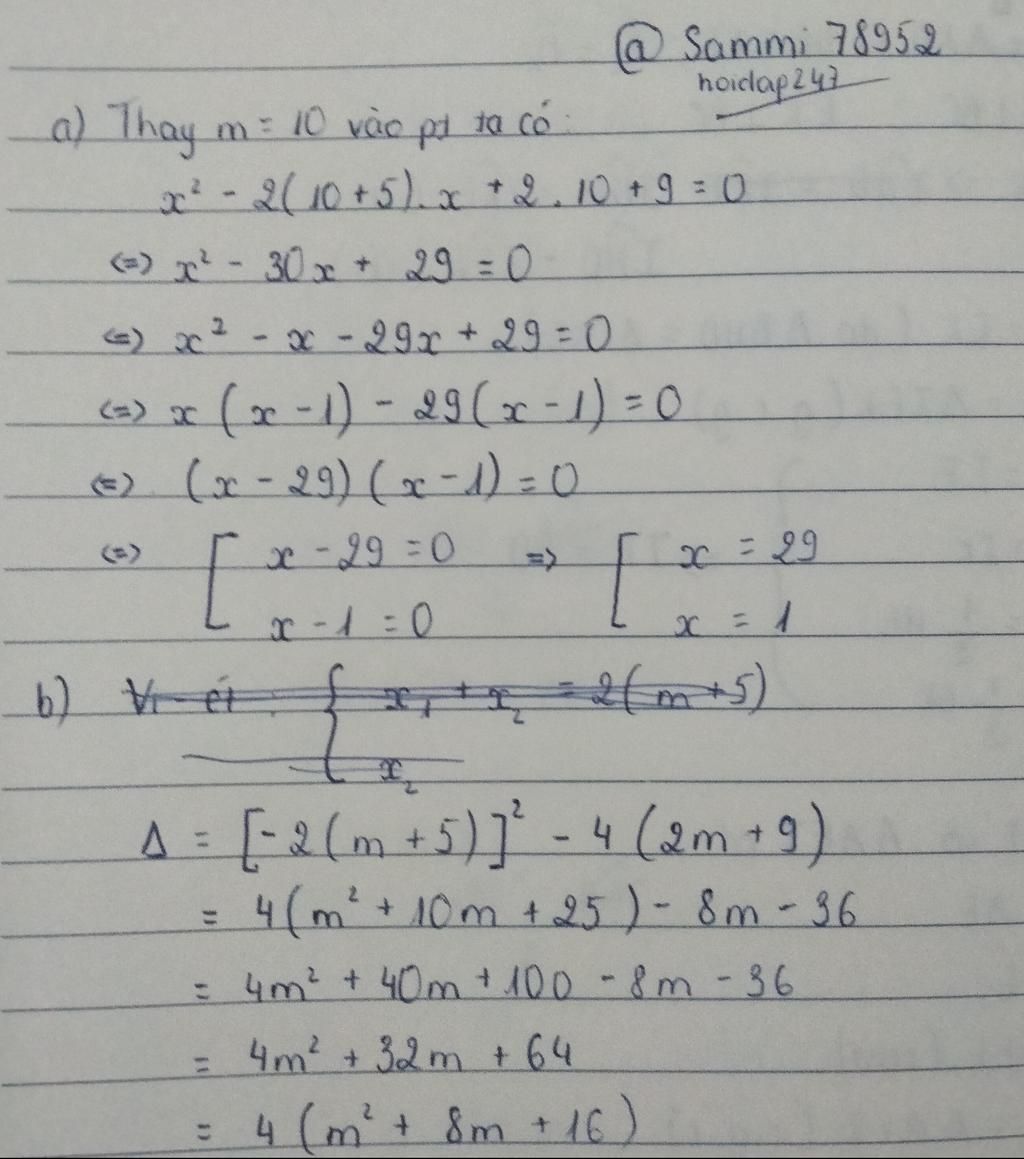 @ Sammi 78952
hoidap247
a) Thay m = 10 vào pt ta có:
x² - 2(10 + 5).x + 2.10 + 9 = 0
<=> x² - 30x + 29 = 0
<=> x² - x - 29x + 29 = 0
<=> x(x - 1) - 29(x - 1) = 0
<=> (x - 29)(x - 1) = 0
<=> [ x - 29 = 0 => [ x = 29
x - 1 = 0 x = 1
b) Vi-ét : { x₁ + x₂ = 2(m + 5)
x₂
Δ = [-2(m + 5)]² - 4(2m + 9)
= 4(m² + 10m + 25) - 8m - 36
= 4m² + 40m + 100 - 8m - 36
= 4m² + 32m + 64
= 4(m² + 8m + 16)